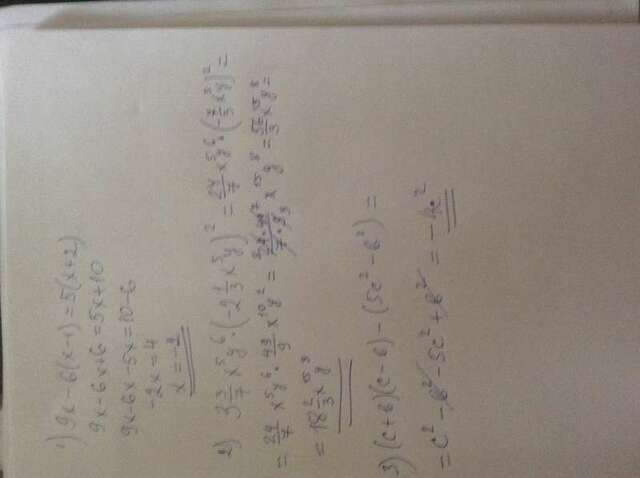 1) 9x - 6(x-1) = 5(x+2)
9x - 6x + 6 = 5x + 10
9x - 6x - 5x = 10 - 6
-2x = 4
x = -2
2) 3 3/7 x⁵y⁶ · (-2 1/3 x⁵y)² = 24/7 x⁵y⁶ · (-7/3 x⁵y)² =
= 24/7 x⁵y⁶ · 49/9 x¹⁰y² = 24·49/7·9 x¹⁵y⁸ = 56/3 x¹⁵y⁸ =
= 18 2/3 x¹⁵y⁸
3) (c+b)(c-b) - (5c² - b²) =
= c² - b² - 5c² + b² = -4c²